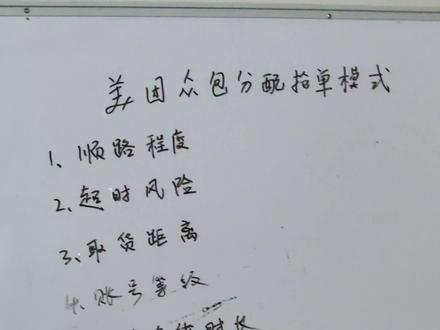 美团众包分配指单模式
1、顺路程度
2、超时风险
3、取货距离
4、账号等级
时长